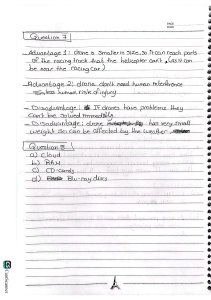 Question 7
- Advantage 1: drone is smaller in size, so it can reach parts
of the racing track that the helicopter can't (as it can
be near the racing car)
Advantage 2: drone don't need human interference
so less human risk of injury
- Disadvantage: If drones have problems they
can't be solved immediately
- Disadvantage: drone has very small
weight so can be affected by the weather
Question 8
a) Cloud
b) RAM
c) CD-cards
d) Blu-ray discs